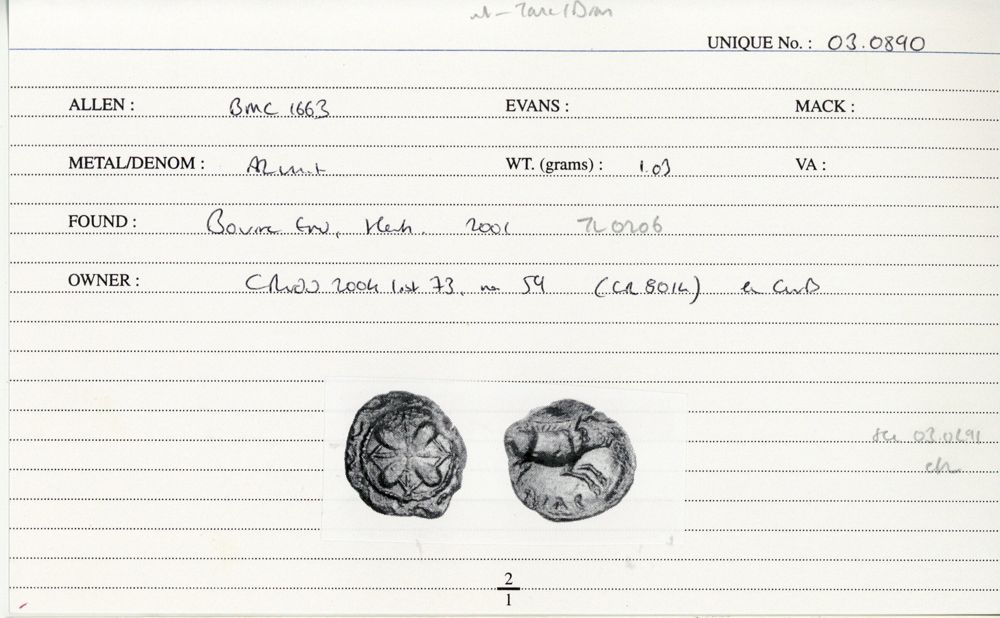 UNIQUE No. : 03.0890
ALLEN : BMC 1663 EVANS : MACK :
METAL/DENOM : AR unit WT. (grams) : 1.03 VA :
FOUND : Bourne End, Herts. 2001 TL0206
OWNER : 2004 list 73, no 59 (CR 8014) ex
03.0691
2
1